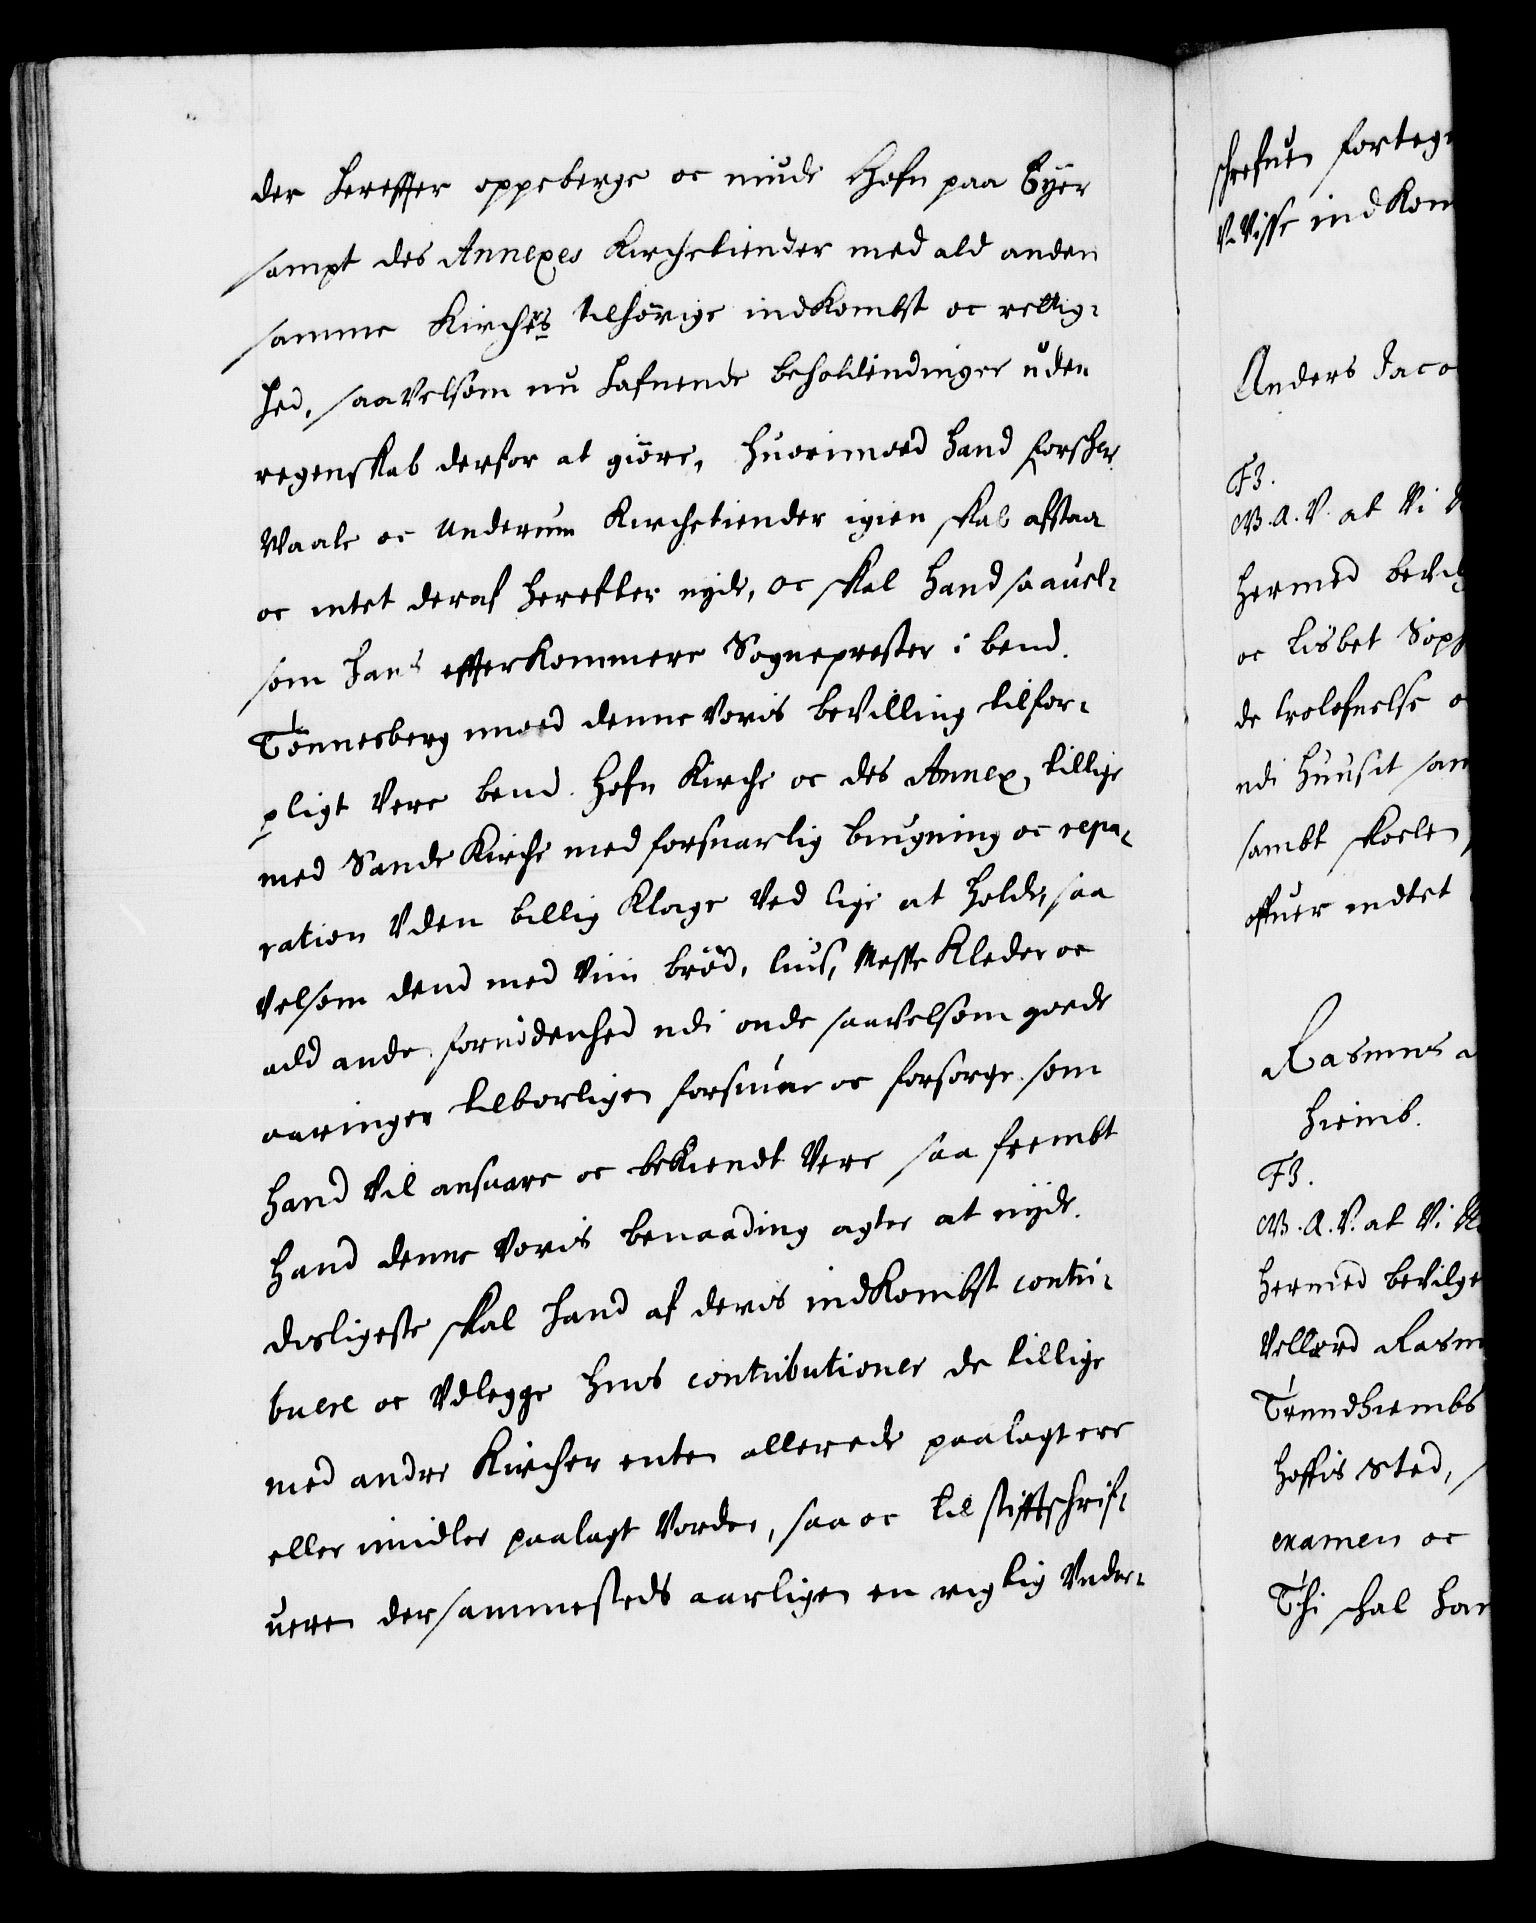 der hereffter oppeberge oc niude Hofn paa Eÿer
sampt des Annexes Kirchetiender med ald anden
samme Kirches tilhörige indKombst oc rettig-
hed, saaVelsom nu hafuende beholdindinger uden
regenskab derfor at giöre, huorimoed hand forschr.
Waale oc Underum Kirchetiender igien skal afstaa
oc intet deraf herefter nyde, oc skal hand saauel-
som hans effterKommere Sogneprester i bend.
Tönnesberg imoed denne Voris beVilling tilfor-
pligt Vere bend. Hofn Kirche oc des Annex, tillige
med Sande Kirche med forsuarlig bugning oc repa-
ration Vden billig Klage Ved lige at holde, saa
Velsom dend med Viin bröd, lius, MesseKleder oc
ald anden fornödenhed udi onde saavelsom goede
aaringer tilborligen forsuare oc forsorge som
hand Vil ansuare oc beKiendt Vere saa frembt
hand denne Voris benaading agter at nyde.
disligeste skal hand af deris indKombst contri-
buere oc Vdlegge huis contributioner de tillige
med andre Kircher enten allerede paalagt ere
eller imidler paalagt Vorder, saa oc til stiftschrif-
ueren dersammesteds aarligen en rigtig Vnder-
schrefuen forteg
V.Visse indKom
Anders Jaco
F3.
W.A.V. at Vi
hermed beVil
oc Lisbet Soph
de trolofuelse
udi huuset
sambt skoele
ofuer indtet
Rasmus
hiemb.
F3.
W.A.V. at Vi
hermed beVilge
Vellerd Rasm
Trundhiembs
hoffis sted,
examen oc
Thi schal han